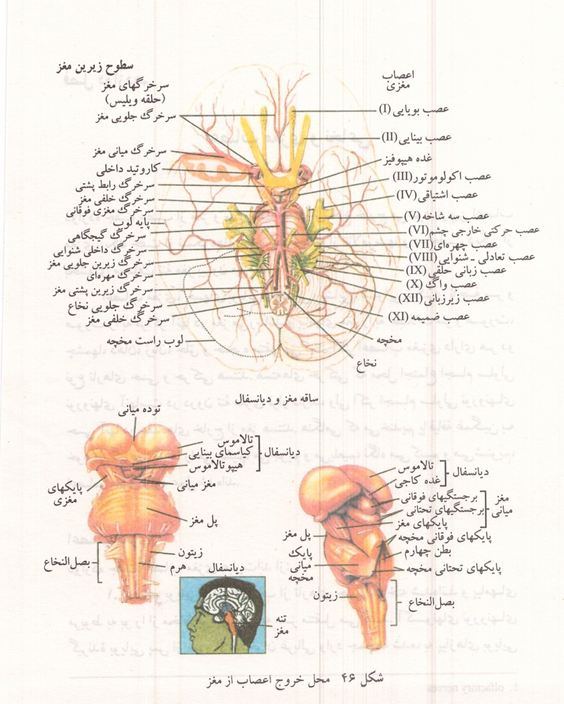 سطوح زیرین مغز
سرخرگهای مغز
(حلقه ویلیس)
سرخرگ جلویی مغز
سرخرگ میانی مغز
کاروتید داخلی
سرخرگ رابط پشتی
سرخرگ خلفی مغز
سرخرگ مغزی فوقانی
پایه لوب
سرخرگ گیجگاهی
سرخرگ داخلی شنوایی
سرخرگ زیرین جلویی مغز
سرخرگ مهره‌ای
سرخرگ زیرین پشتی مغز
سرخرگ جلویی نخاع
سرخرگ خلفی مغز
لوب راست مخچه
اعصاب
مغزی
عصب بویایی (I)
عصب بینایی (II)
غده هیپوفیز
عصب اکولوموتور (III)
عصب اشتیاقی (IV)
عصب سه شاخه (V)
عصب حرکتی خارجی چشم (VI)
عصب چهره‌ای (VII)
عصب تعادلی ـ شنوایی (VIII)
عصب زبانی حلقی (IX)
عصب واگ (X)
عصب زیرزبانی (XII)
عصب ضمیمه (XI)
مخچه
نخاع
ساقه مغز و دیانسفال
توده میانی
تالاموس
کیاسمای بینایی
هیپوتالاموس
دیانسفال
مغز میانی
پایکهای
مغزی
پل مغز
زیتون
هرم
بصل‌النخاع
دیانسفال
تنه
مغز
تالاموس
غده کاجی
دیانسفال
برجستگیهای فوقانی
برجستگیهای تحتانی
پایکهای مغز
مغز
میانی
پایکهای فوقانی مخچه
بطن چهارم
پایکهای تحتانی مخچه
پل مغز
پایک
میانی
مخچه
زیتون
بصل‌النخاع
شکل ۴۶ محل خروج اعصاب از مغز